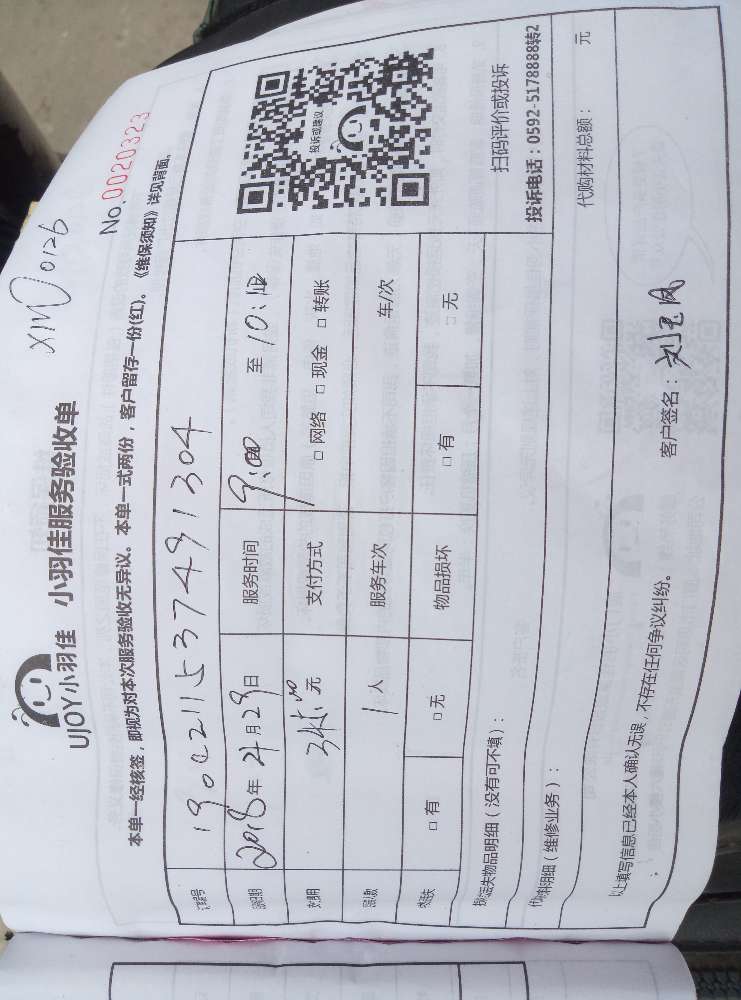 XMD0126
UJOY小羽佳 小羽佳服务验收单
No.0020323
本单一经核签，即视为对本次服务验收无异议。本单一式两份，客户留存一份(红)。《维保须知》详见背面。
1902211537491304
2018年4月29日 服务时间 9:00 至 10:10
345.00元 支付方式 □网络 □现金 □转账
1人 服务车次 车/次
□有 □无 物品损坏 □有 □无
投诉或建议
扫码评价或投诉
投诉电话：0592-5178888转2
损坏/丢失物品明细（没有可不填）：
代购明细（维修业务）：
代购材料总额： 元
以上填写信息已经本人确认无误，不存在任何争议纠纷。
客户签名：刘玉凤